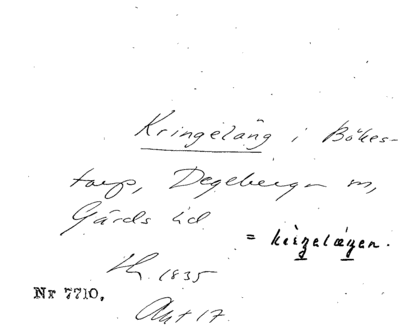 Kringeläng i Bökes-
torp, Degeberga sn,
Gärds hd
= kriŋelæŋen.
Lh. 1835
Nr 7710.
Akt 17.